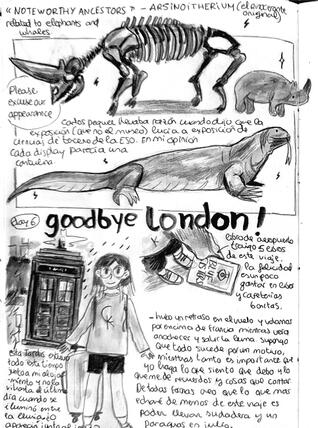 " NOTEWORTHY ANCESTORS " - ARSINOITHERIUM (el
original)
related to elephants and
whales.
Please
excuse our
appearance
carlos paquel llevaba razón cuando dijo que la
exposición (que no el museo) lucía a exposición de
ciencias de tercero de la ESO. En mi opinión
cada display parecía una
cartulina
day 6
goodbye London!
libro de aeropuerto
traigo 5 libros
de este viaje.
la felicidad
es un poco
gastar en libros
y cafeterías
bonitas.
- hubo un retraso en el vuelo y
por encima de francia mientras veía
anochecer y salir la luna. supongo
que todo sucede por un motivo,
y mientras tanto es importante que
yo haga lo que siento que debo y lo
que me de recuerdos y cosas que contar.
De todas formas creo que lo que más
echaré de menos de este viaje es
poder llevar sudadera y un
paraguas en julio.
esta Tardis estuvo
todo este tiempo
día cuando se
iluminó entre
la